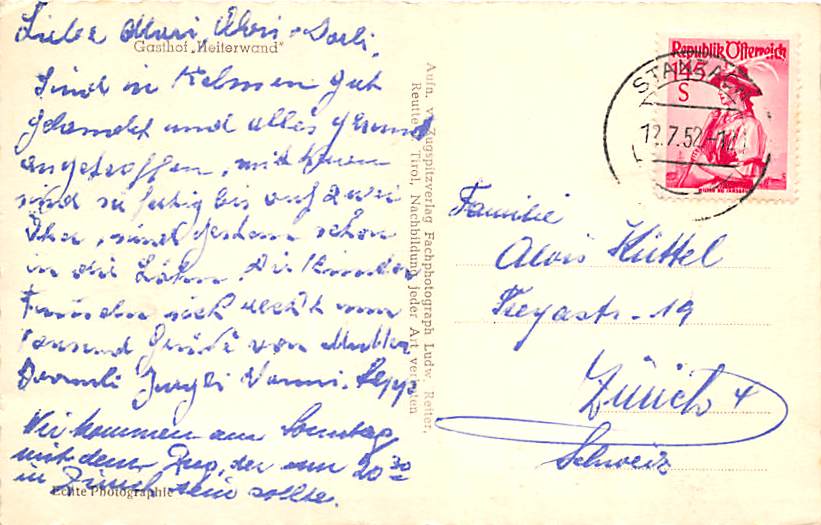 Liebe Mari, Alvis - Dorli,
Gasthof „Heiterwand"
Sind in Kelmen gut
gelandet und alles gesund
angetroffen, mit Heuen
sind sie fertig bis auf zwei
sind gestern schon
in die Lähn. Die Kinder
freuen sich recht
tausend Grüsse von Mutter
Vronli Jungli Vanni, Sepp
Wir kommen am Sonntag
mit dem Zug, der um 20 30
in Zürich sein sollte.
Echte Photographie
Aufn. v. Zugspitzverlag Fachphotograph Ludw. Reiter,
Reutte Tirol, Nachbildung jeder Art verboten
Republik Österreich
145
S
12.7.52
Familie
Alois Küttel
Freyastr. 19
Zürich 4
Schweiz